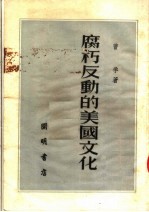 腐朽反動的美國文化
曹孚著
開明書店